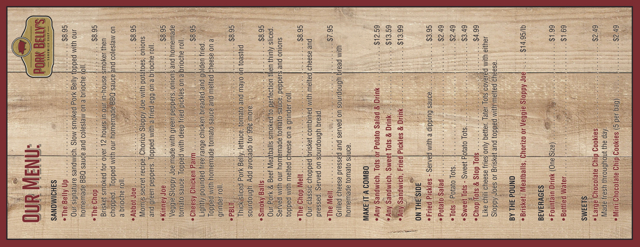 PORK BELLY'S
OUR MENU:
SANDWICHES
• The Belly Up $8.95
Our signature sandwich. Slow smoked Pork Belly topped with our
homemade BBQ sauce and coleslaw on a brioche roll.
• The Chop $8.95
Brisket smoked for over 12 hours in our in-house smoker then
chopped and topped with our homemade BBQ sauce and coleslaw on
a brioche roll.
• Abbot Joe $8.95
and green peppers. Topped with a fried egg on a brioche roll.
• Kenney Joe $8.95
Veggie Sloppy Joe made with green peppers, onions and homemade
tomato sauce. Topped with deep fried pickles on a brioche roll.
• Cheesy Chicken Parm $8.95
Lightly pounded free range chicken breaded and golden fried.
Topped with homemade tomato sauce and melted cheese on a
• PBLT $8.95
Thick sliced Pork Belly, lettuce, tomato and mayo on toasted
sourdough. Add avocado for 99¢ more.
• Smoky Balls $8.95
Our Pork & Beef Meatballs smoked to perfection then thinly sliced.
topped with melted cheese on a grinder roll.
• The Chop Melt $8.95
Our classic chopped brisket combined with melted cheese and
pressed. Served on sourdough bread.
• The Melt $7.95
Grilled cheese pressed and served on sourdough bread with
homemade tomato sauce.
MAKE IT A COMBO
• Any Sandwich, Tots or Potato Salad & Drink $12.59
• Any Sandwich, Sweet Tots & Drink $13.59
• Any Sandwich, Fried Pickles & Drink $13.99
ON THE SIDE
• Fried Pickles - Served with a dipping sauce. $3.95
• Potato Salad $2.49
• Tots - Potato Tots. $2.49
• Sweet Tots - Sweet Potato Tots. $3.49
• Chop't up Tots $4.99
Like chili cheese fries only better. Tater Tots covered with either
Sloppy Joes or Brisket and topped with melted cheese.
BY THE POUND
• Brisket, Meatballs, Chorizo or Veggie Sloppy Joe $14.95/lb
BEVERAGES
• Fountain Drink (One Size) $1.99
• Bottled Water $1.69
SWEETS
• Large Chocolate Chip Cookies $2.49
Made fresh throughout the day.
• Mini Chocolate Chip Cookies (5 per bag) $2.49